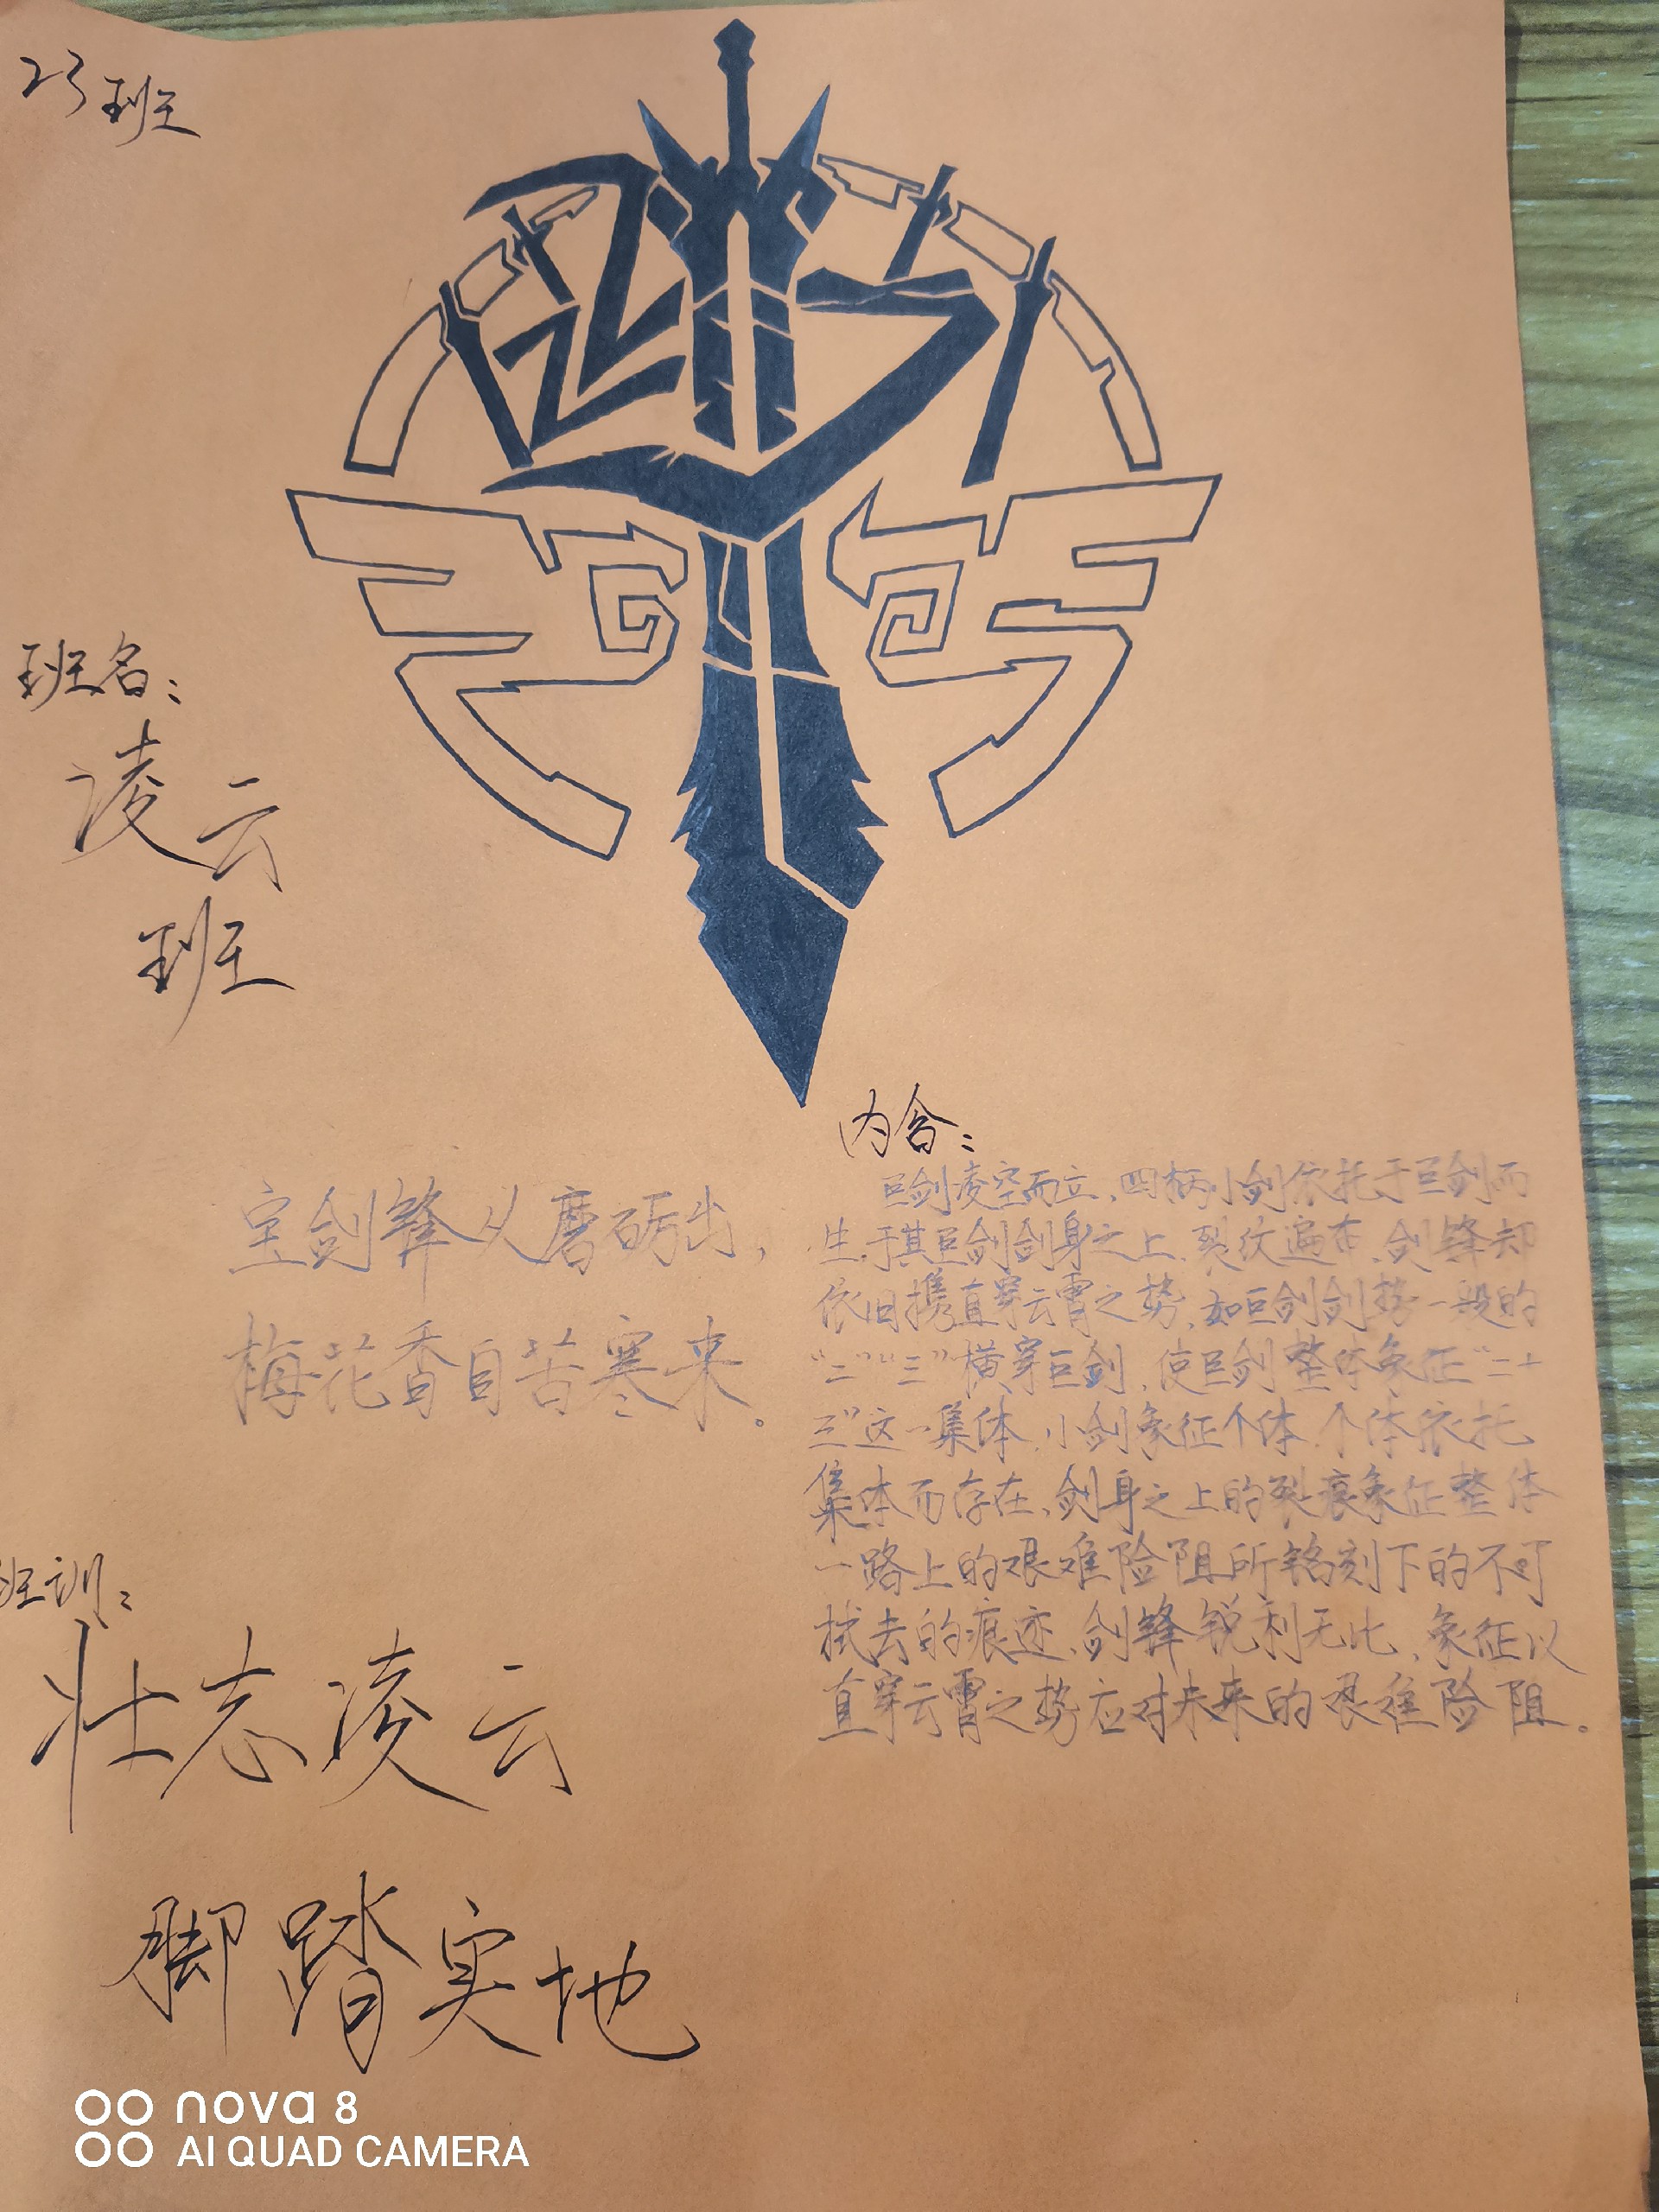 23班
班名：
凌云
班
宝剑锋从磨砺出，
梅花香自苦寒来。
内含：
巨剑凌空而立，四柄小剑依托于巨剑而
生，于其巨剑剑身之上，裂纹遍布，剑锋却
依旧携直穿云霄之势，如巨剑剑势一般的
“二”“三”横穿巨剑，使巨剑整体象征“二十
三”这一集体，小剑象征个体，个体依托
集体而存在，剑身之上的裂痕象征整体
一路上的艰难险阻所铭刻下的不可
拭去的痕迹，剑锋锐利无比，象征以
直穿云霄之势应对未来的艰难险阻。
班训：
壮志凌云
脚踏实地
nova 8
AI QUAD CAMERA